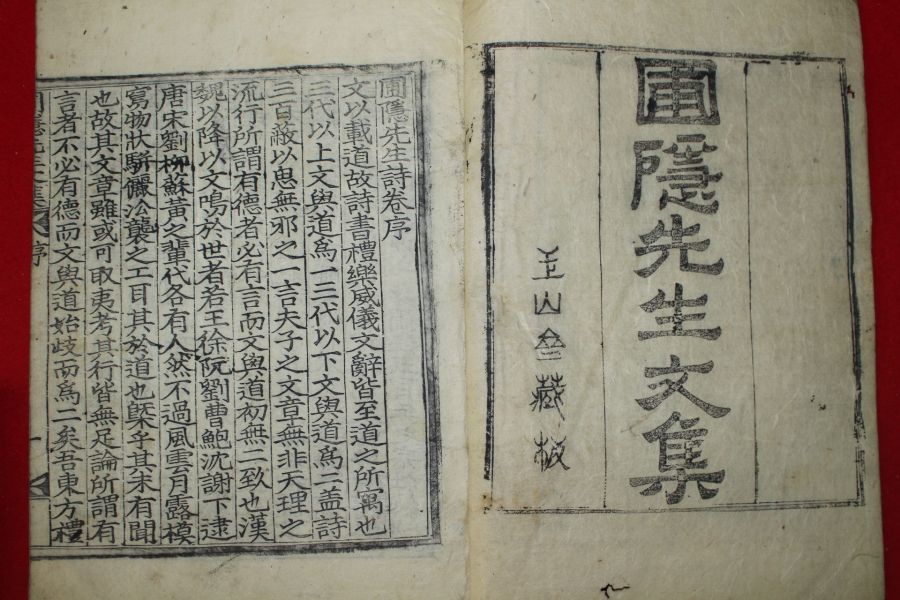 圃隱先生文集
玉山齋藏板
圃隱先生詩卷序
文以載道故詩書禮樂威儀文辭皆至道之所寓也
三代以上文與道爲一三代以下文與道爲二盖詩
三百蔽以思無邪之一言夫子之文章無非天理之
流行所謂有德者必有言而文與道初無二致也漢
魏以降以文鳴於世者若王徐阮劉曹鮑沈謝下逮
唐宋劉柳蘇黃之輩代各有人然不過風雲月露模
寫物狀騈儷㳂襲之工目其於道也槩乎其未有聞
也故其文章雖或可取夷考其行皆無足論所謂有
言者不必有德而文與道始歧而爲二矣吾東方禮
圃隱先生集 序